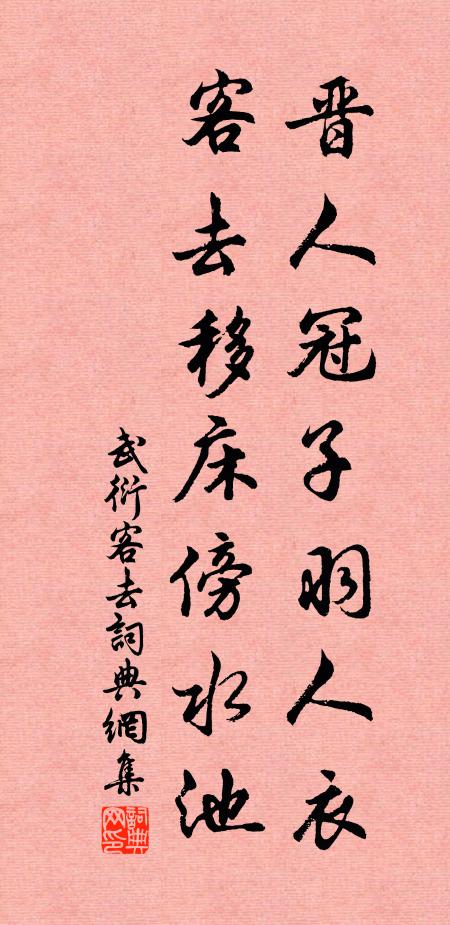 晋人冠子羽人衣
客去移床傍水池
武衍客去詞典網集
詞典網印